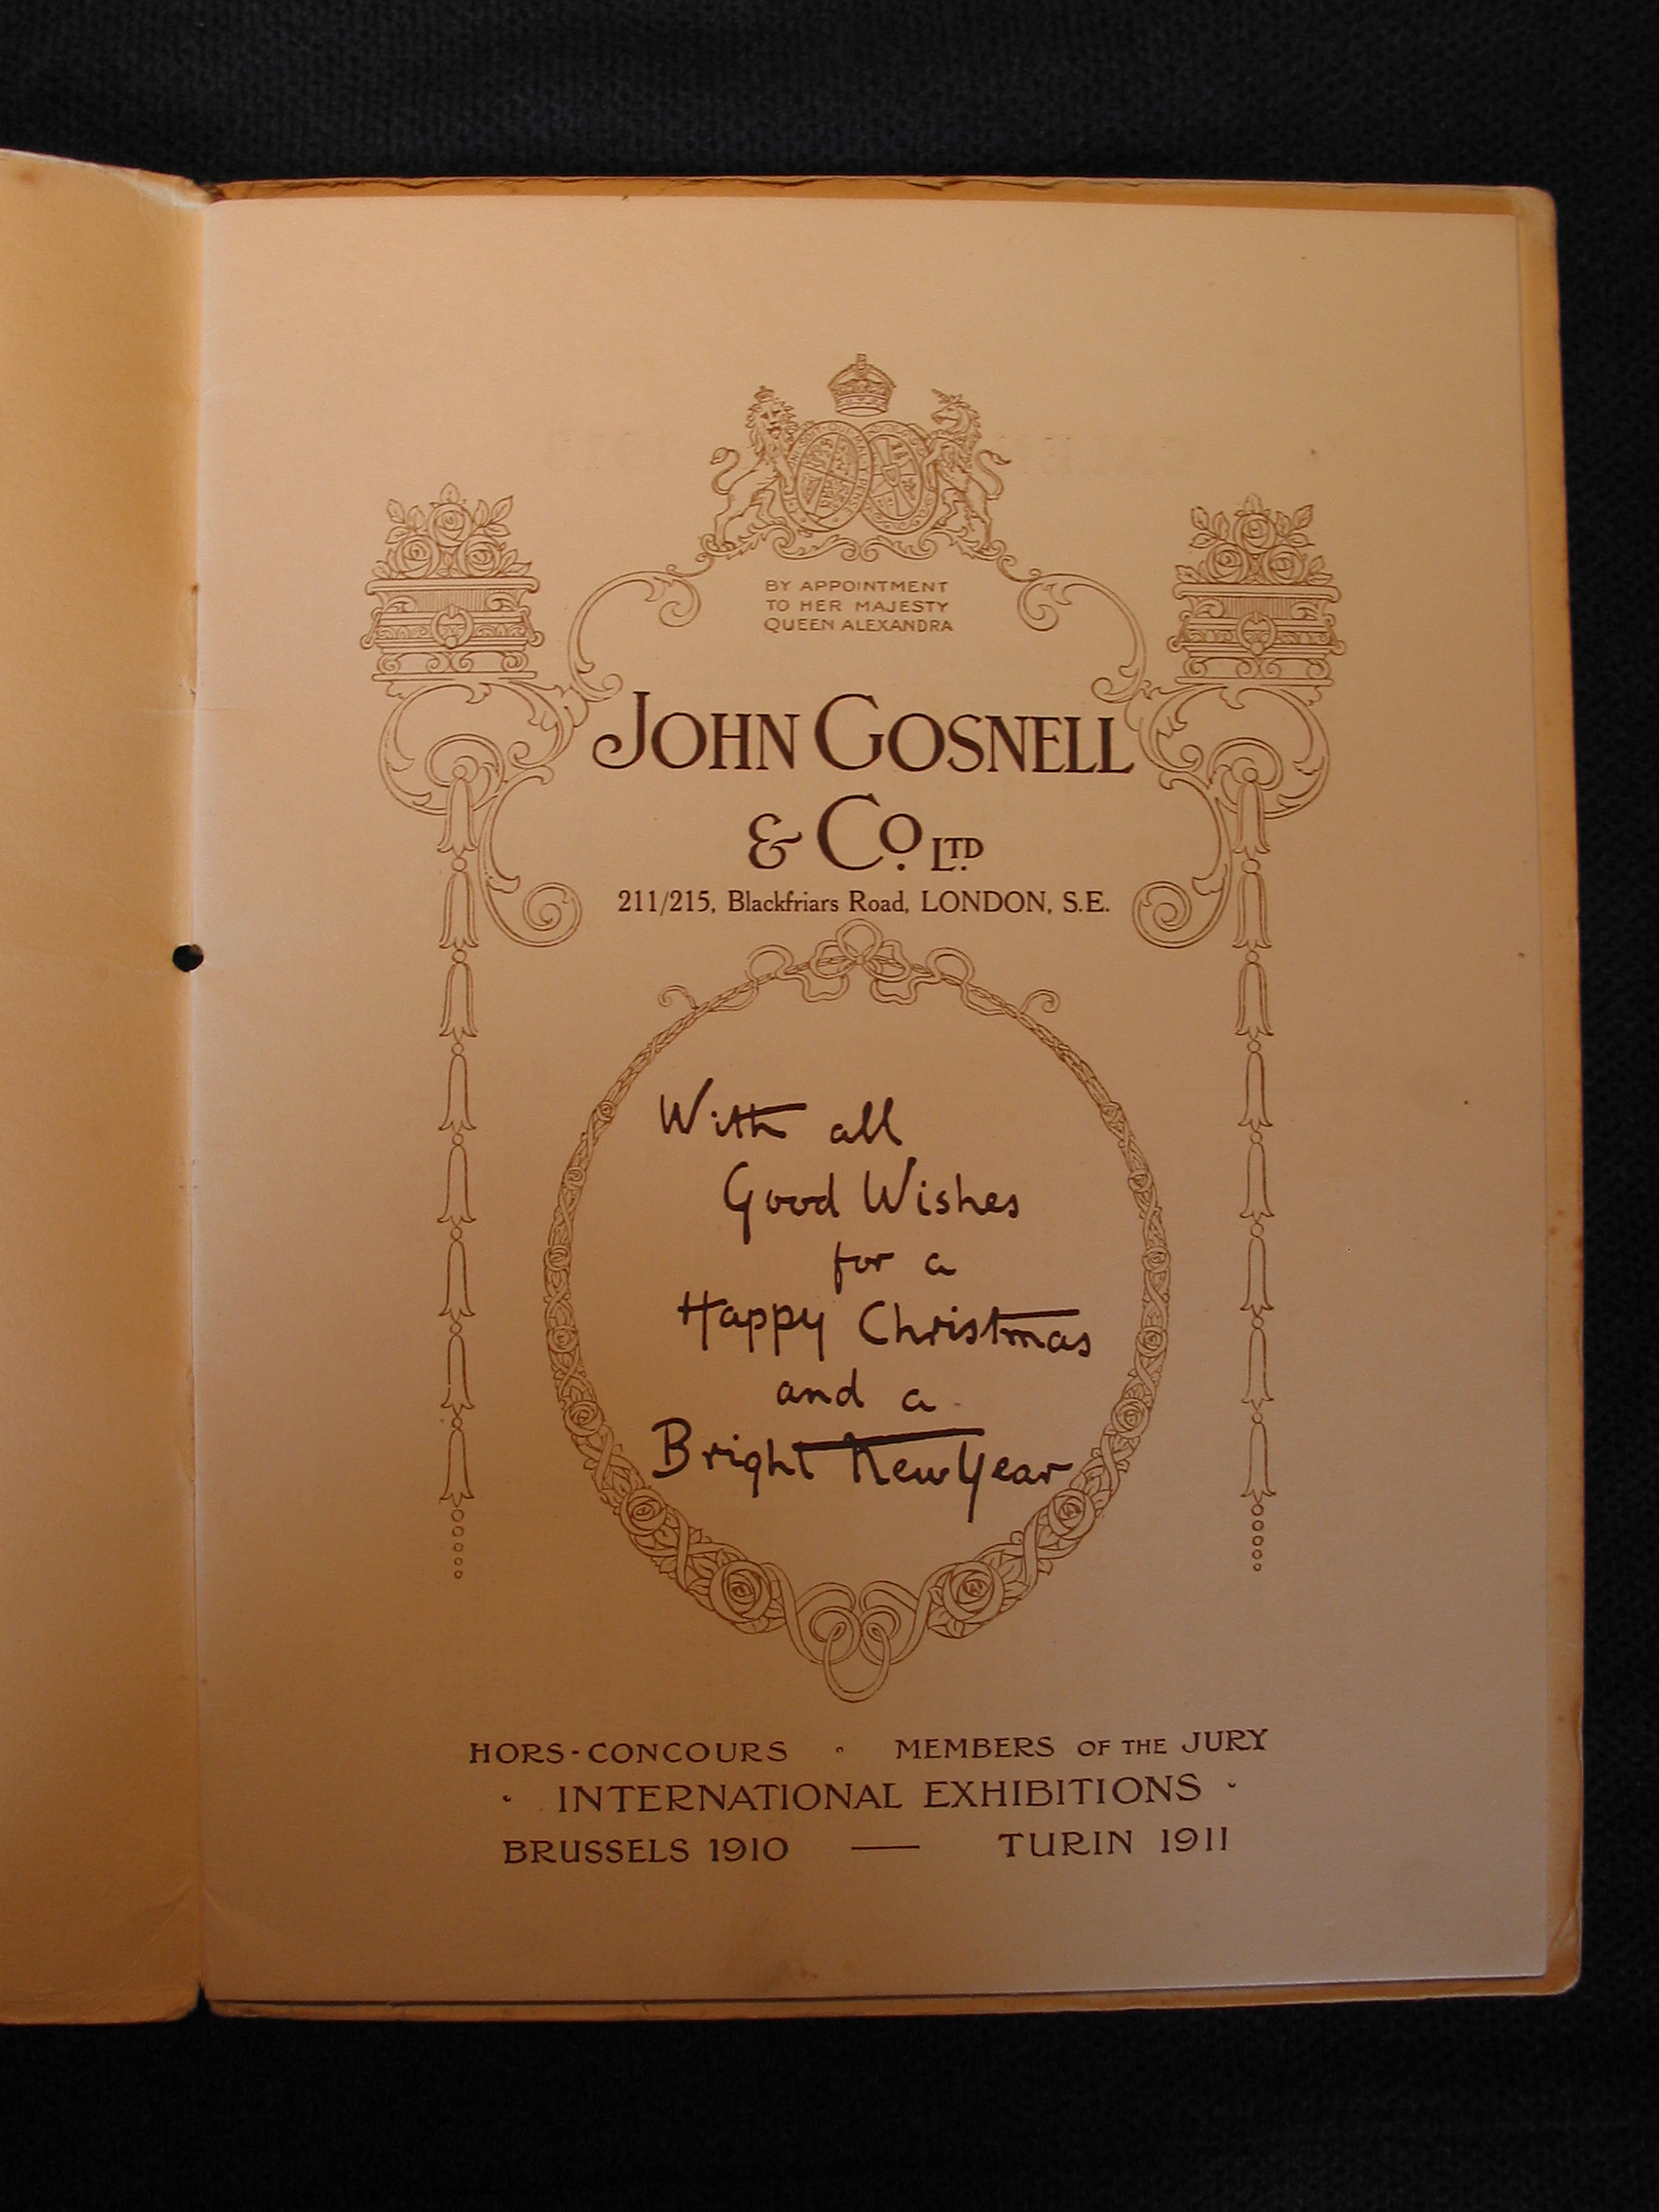 BY APPOINTMENT
TO HER MAJESTY
QUEEN ALEXANDRA
JOHN GOSNELL
& Co. LTD.
211/215, Blackfriars Road, LONDON, S.E.
With all
Good Wishes
for a
Happy Christmas
and a
Bright New Year
HORS-CONCOURS · MEMBERS OF THE JURY
· INTERNATIONAL EXHIBITIONS ·
BRUSSELS 1910 — TURIN 1911